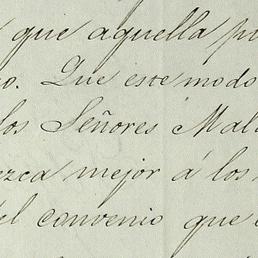 que aquella
o. Que este modo
los Señores Mal
ezca mejor á los
del convenio que